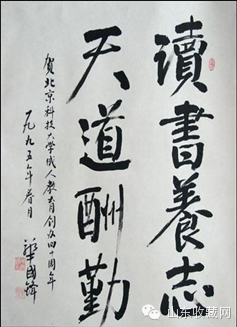 讀書養志
天道酬勤
賀北京科技大學成人教育創辦四十周年
一九九五年春月
華國鋒
山东收藏网